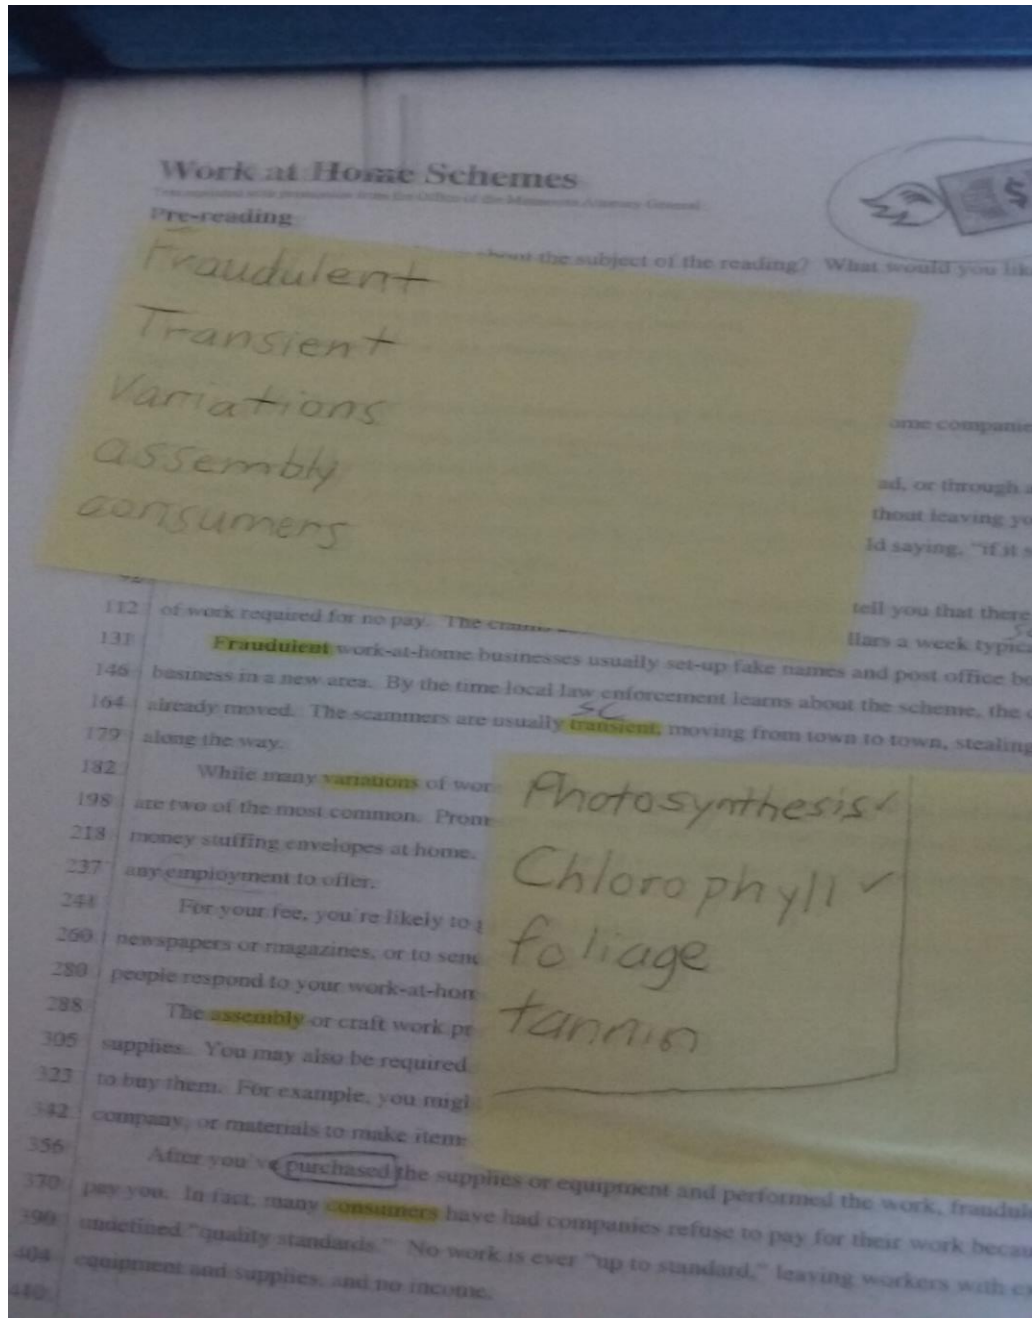 Work at Home Schemes
Pre-reading
about the subject of the reading? What would you lik
Fraudulent
Transient
Variations
assembly
consumers
ome companie
ad, or through a
thout leaving yo
ld saying, "if it s
tell you that there
112 of work required for no pay. The
llars a week typica
131 Fraudulent work-at-home businesses usually set-up fake names and post office bo
146 business in a new area. By the time local law enforcement learns about the scheme, the
SC
164 already moved. The scammers are usually transient, moving from town to town, stealing
179 along the way.
182 While many variations of wor
198 are two of the most common. Prom
218 money stuffing envelopes at home.
237 any employment to offer.
244 For your fee, you're likely to
260 newspapers or magazines, or to send
280 people respond to your work-at-hom
288 The assembly or craft work pr
305 supplies. You may also be required
323 to buy them. For example, you migh
342 company, or materials to make item
Photosynthesis ✓
Chlorophyll ✓
foliage
tannin
356 After you've purchased the supplies or equipment and performed the work, fraudule
370 pay you. In fact, many consumers have had companies refuse to pay for their work becau
390 undefined "quality standards." No work is ever "up to standard," leaving workers with ex
404 equipment and supplies, and no income.
410
$